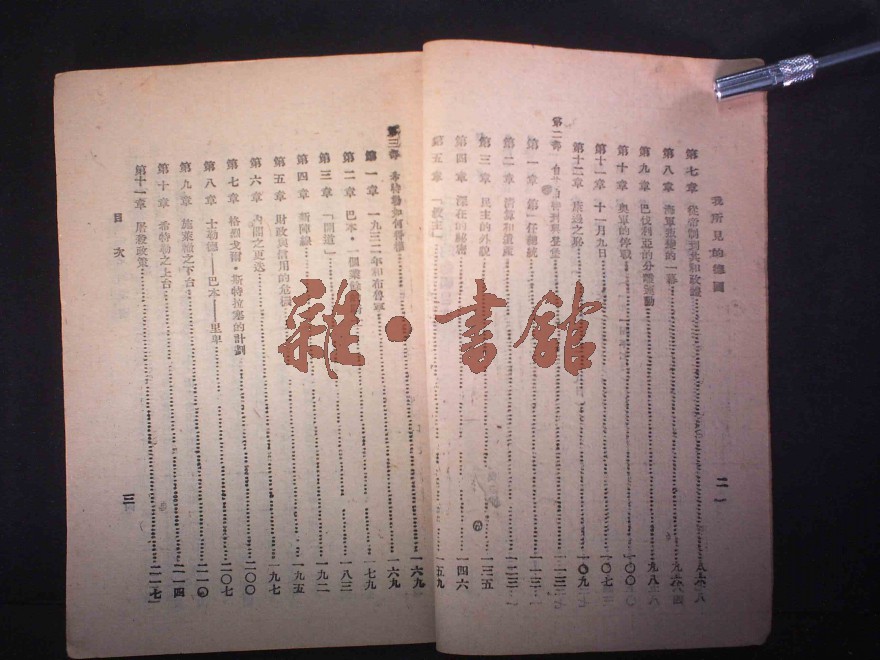 我所見的德國
二
第七章 從帝制到共和政體
第八章 海軍叛變的一幕
第九章 巴伐利亞的分離運動 九八
第十章 奧軍的停戰 一〇〇
第十一章 十一月九日 一〇七
第十二章 康邊之恥 一〇九
第二部
第一章 第一任總統 一一三
第二章 清算和遺產 一二三
第三章 民主的外貌 一三五
第四章 潛在的秘密 一四六
第五章 「救主」 五九
第三部 希特勒如何得權 一六九
第一章 一九三二年和布魯寧 一六九
第二章 巴本·一個 一七九
第三章 「開道」 一八三
第四章 新陣線 一九二
第五章 財政與信用的危機 一九五
第六章 內閣之更迭 一九七
第七章 格烈戈爾·斯特拉塞的計劃 二〇〇
第八章 士勒德——巴本——里畢 二〇七
第九章 施萊赫之下台 二一〇
第十章 希特勒之上台 二一四
第十一章 屠殺政策 二一七
目次
三
雜·書館